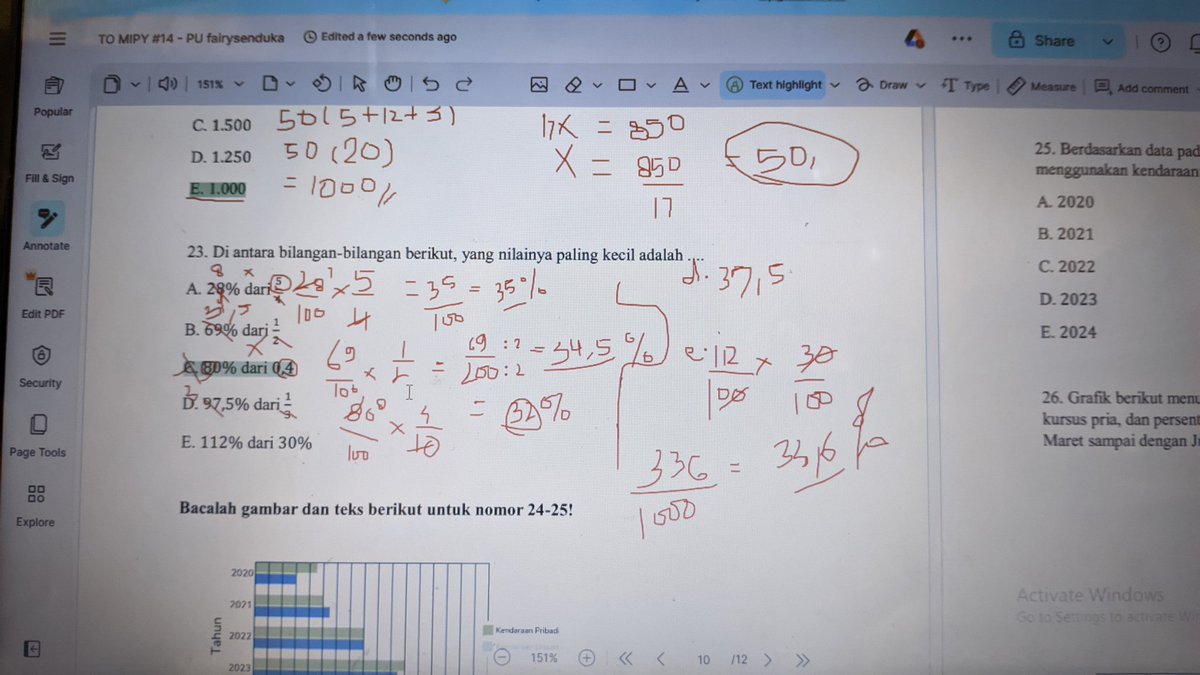 TO MIPY #14 - PU fairysenduka
Edited a few seconds ago
Share
151%
Text highlight
Draw
Type
Measure
Add comment
Popular
Fill & Sign
Annotate
Edit PDF
Security
Page Tools
Explore
C. 1.500
50(5+12+3)
D. 1.250
50(20)
E. 1.000
= 1000
17x = 850
x = 850/17 = 50
23. Di antara bilangan-bilangan berikut, yang nilainya paling kecil adalah ....
A. 28% dari 5/4
28/100 x 5/4 = 35/100 = 35%
B. 69% dari 1/2
69/100 x 1/2 = 69/200 :2 :2 = 34,5%
C. 80% dari 0,4
80/100 x 4/10 = 32%
D. 97,5% dari
E. 112% dari 30%
d. 37,5
e. 112/100 x 30/100
336/1000 = 33,6%
Bacalah gambar dan teks berikut untuk nomor 24-25!
Tahun
2020
2021
2022
2023
Kendaraan Pribadi
151%
10 /12
25. Berdasarkan data pad
menggunakan kendaraan
A. 2020
B. 2021
C. 2022
D. 2023
E. 2024
26. Grafik berikut menu
kursus pria, dan persent
Maret sampai dengan Ju
Activate Windows
Go to Settings to activate Win